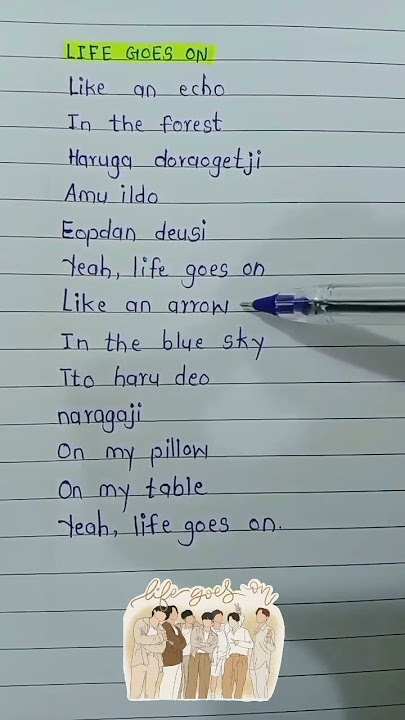 LIFE GOES ON
Like an echo
In the forest
Haruga doraogetji
Amu ildo
Eopdan deusi
Yeah, life goes on
Like an arrow
In the blue sky
Tto haru deo
naragaji
On my pillow
On my table
Yeah, life goes on.
life goes on